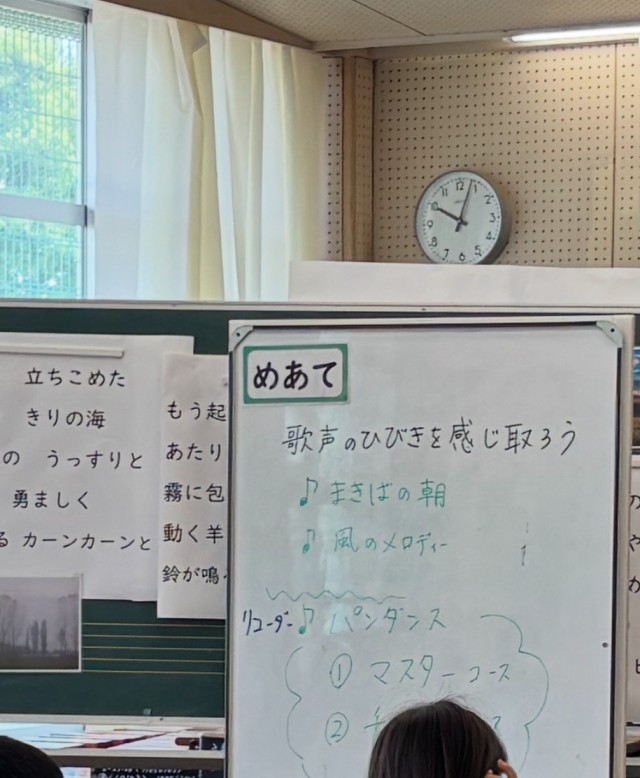 立ちこめた
きりの海
の うっすりと
勇ましく
る カーンカーンと
もう起
あたり
霧に包
動く羊
鈴が鳴
めあて
歌声のひびきを感じ取ろう
♪ まきばの朝
♪ 風のメロディー
リコーダー ♪ パンダンス
① マスターコース
②
12
1
2
3
4
5
6
7
8
9
10
11